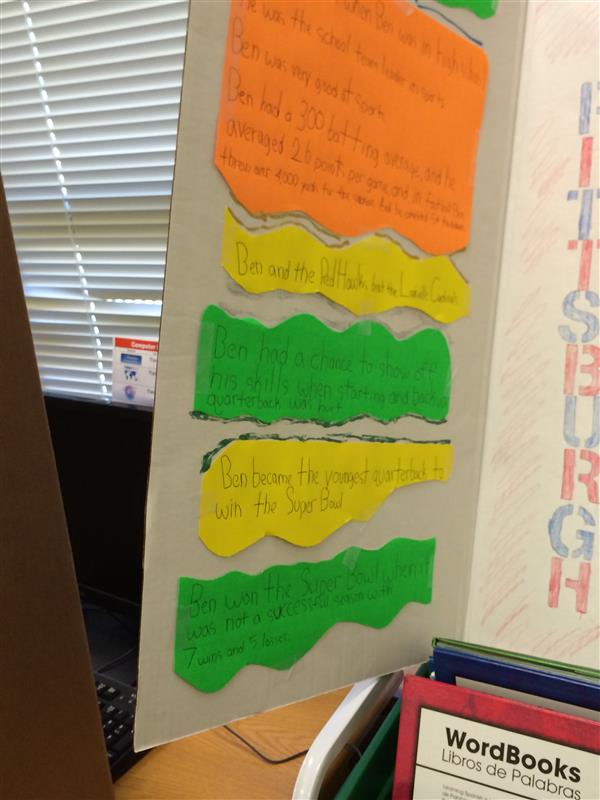 when Ben was in high school
He was the school team leader in sports
Ben was very good at sports
Ben had a 300 batting average, and he
averaged 26 points per game, and in football Ben
threw over 4,000 yards for the
Ben and the RedHawks beat the Louisville Cardinals
Ben had a chance to show off
his skills when starting and backup
quarterback was hurt
Ben became the youngest quarterback to
win the Super Bowl
Ben won the Super Bowl when it
was not a successful season with
7 wins and 5 losses.
PITTSBURGH
Computer
WordBooks
Libros de Palabras